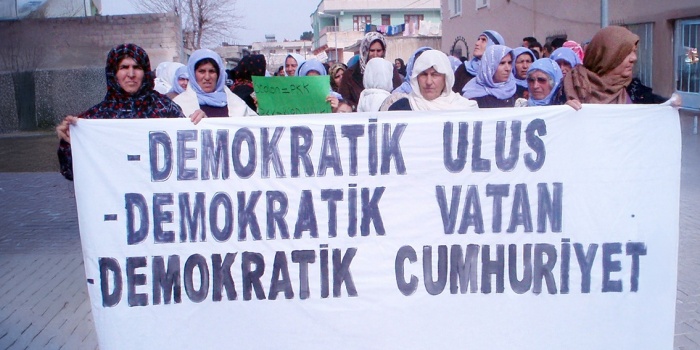 = PKK
- DEMOKRATİK ULUS
- DEMOKRATİK VATAN
- DEMOKRATİK CUMHURİYET